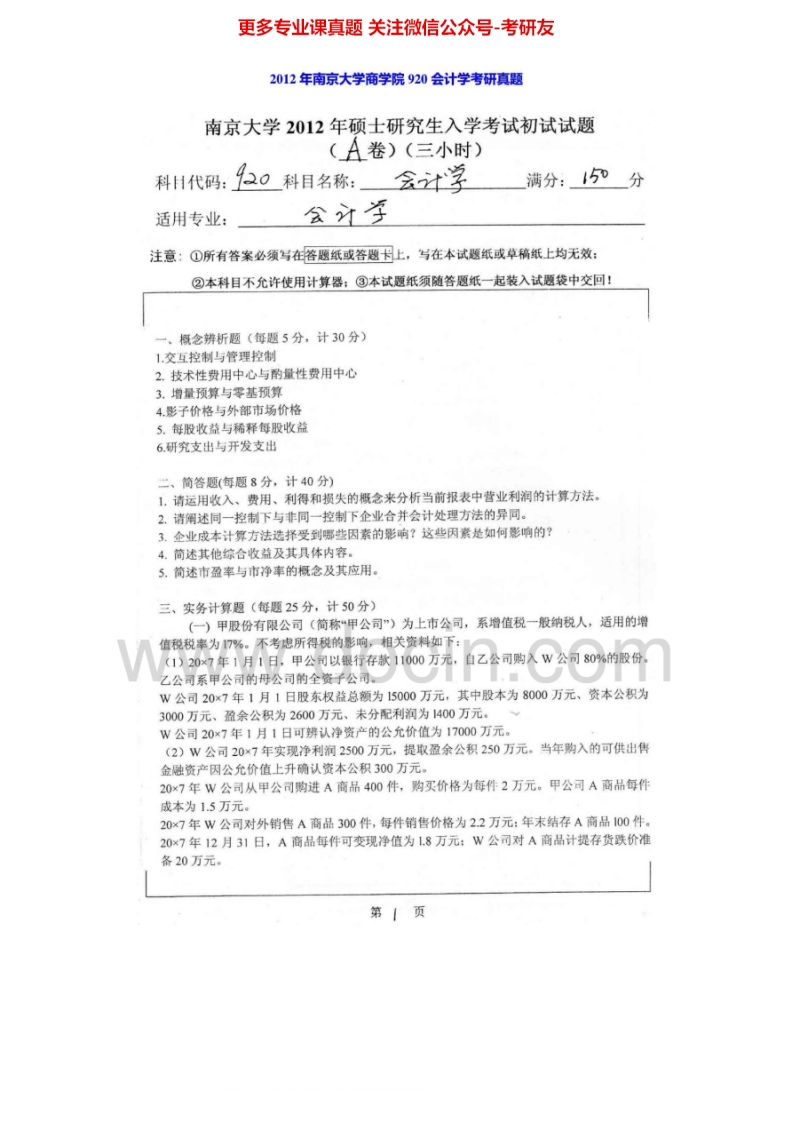 更多专业课真题 关注微信公众号-考研友
2012 年南京大学商学院 920 会计学考研真题
南京大学 2012 年硕士研究生入学考试初试试题
（ A 卷）（三小时）
科目代码： 920 科目名称： 会计学 满分： 150 分
适用专业： 会计学
注意：①所有答案必须写在答题纸或答题卡上，写在本试题纸或草稿纸上均无效；
②本科目不允许使用计算器；③本试题纸须随答题纸一起装入试题袋中交回！
一、概念辨析题（每题 5 分，计 30 分）
1.交互控制与管理控制
2. 技术性费用中心与酌量性费用中心
3. 增量预算与零基预算
4.影子价格与外部市场价格
5. 每股收益与稀释每股收益
6.研究支出与开发支出
二、简答题(每题 8 分，计 40 分)
1. 请运用收入、费用、利得和损失的概念来分析当前报表中营业利润的计算方法。
2. 请阐述同一控制下与非同一控制下企业合并会计处理方法的异同。
3. 企业成本计算方法选择受到哪些因素的影响？这些因素是如何影响的？
4. 简述其他综合收益及其具体内容。
5. 简述市盈率与市净率的概念及其应用。
三、实务计算题（每题 25 分，计 50 分）
(一) 甲股份有限公司（简称“甲公司”）为上市公司，系增值税一般纳税人，适用的增
值税税率为 17%。不考虑所得税的影响。相关资料如下：
（1）20×7 年 1 月 1 日，甲公司以银行存款 11000 万元，自乙公司购入 W 公司 80%的股份。
乙公司系甲公司的母公司的全资子公司。
W 公司 20×7 年 1 月 1 日股东权益总额为 15000 万元，其中股本为 8000 万元、资本公积为
3000 万元、盈余公积为 2600 万元、未分配利润为 1400 万元。
W 公司 20×7 年 1 月 1 日可辨认净资产的公允价值为 17000 万元。
（2）W 公司 20×7 年实现净利润 2500 万元，提取盈余公积 250 万元。当年购入的可供出售
金融资产因公允价值上升确认资本公积 300 万元。
20×7 年 W 公司从甲公司购进 A 商品 400 件，购买价格为每件 2 万元。甲公司 A 商品每件
成本为 1.5 万元。
20×7 年 W 公司对外销售 A 商品 300 件，每件销售价格为 2.2 万元；年末结存 A 商品 100 件。
20×7 年 12 月 31 日，A 商品每件可变现净值为 1.8 万元；W 公司对 A 商品计提存货跌价准
备 20 万元。
第 1 页